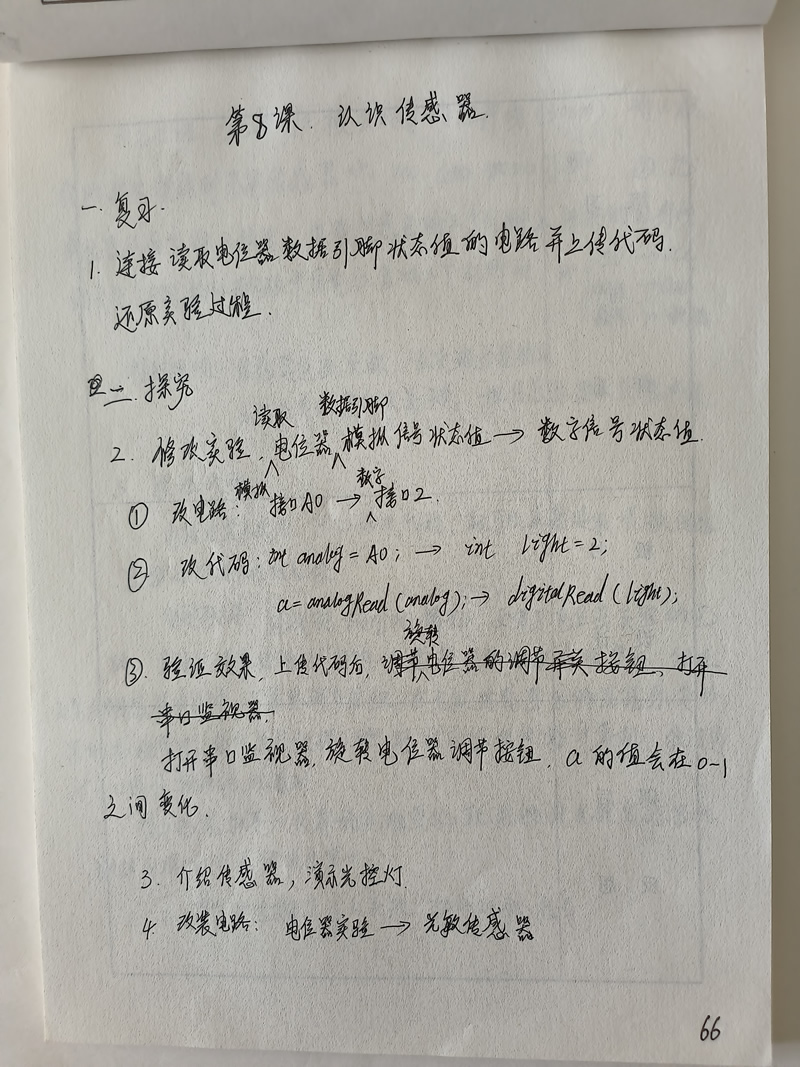 第8课. 认识传感器.
一. 复习.
1. 连接读取电位器数据引脚状态值的电路并上传代码.
还原实验过程.
二. 探究
2. 修改实验, 读取电位器数据引脚模拟信号状态值 → 数字信号状态值.
① 改电路: 模拟接口A0 → 数字接口2.
② 改代码: int analog = A0; → int light = 2;
a = analogRead (analog); → digitalRead (light);
③. 验证效果, 上传代码后, 调节旋转电位器的调节开关按钮、打开
串口监视器.
打开串口监视器, 旋转电位器调节按钮, a 的值会在0-1
之间变化.
3. 介绍传感器, 演示光控灯.
4. 改装电路: 电位器实验 → 光敏传感器
66